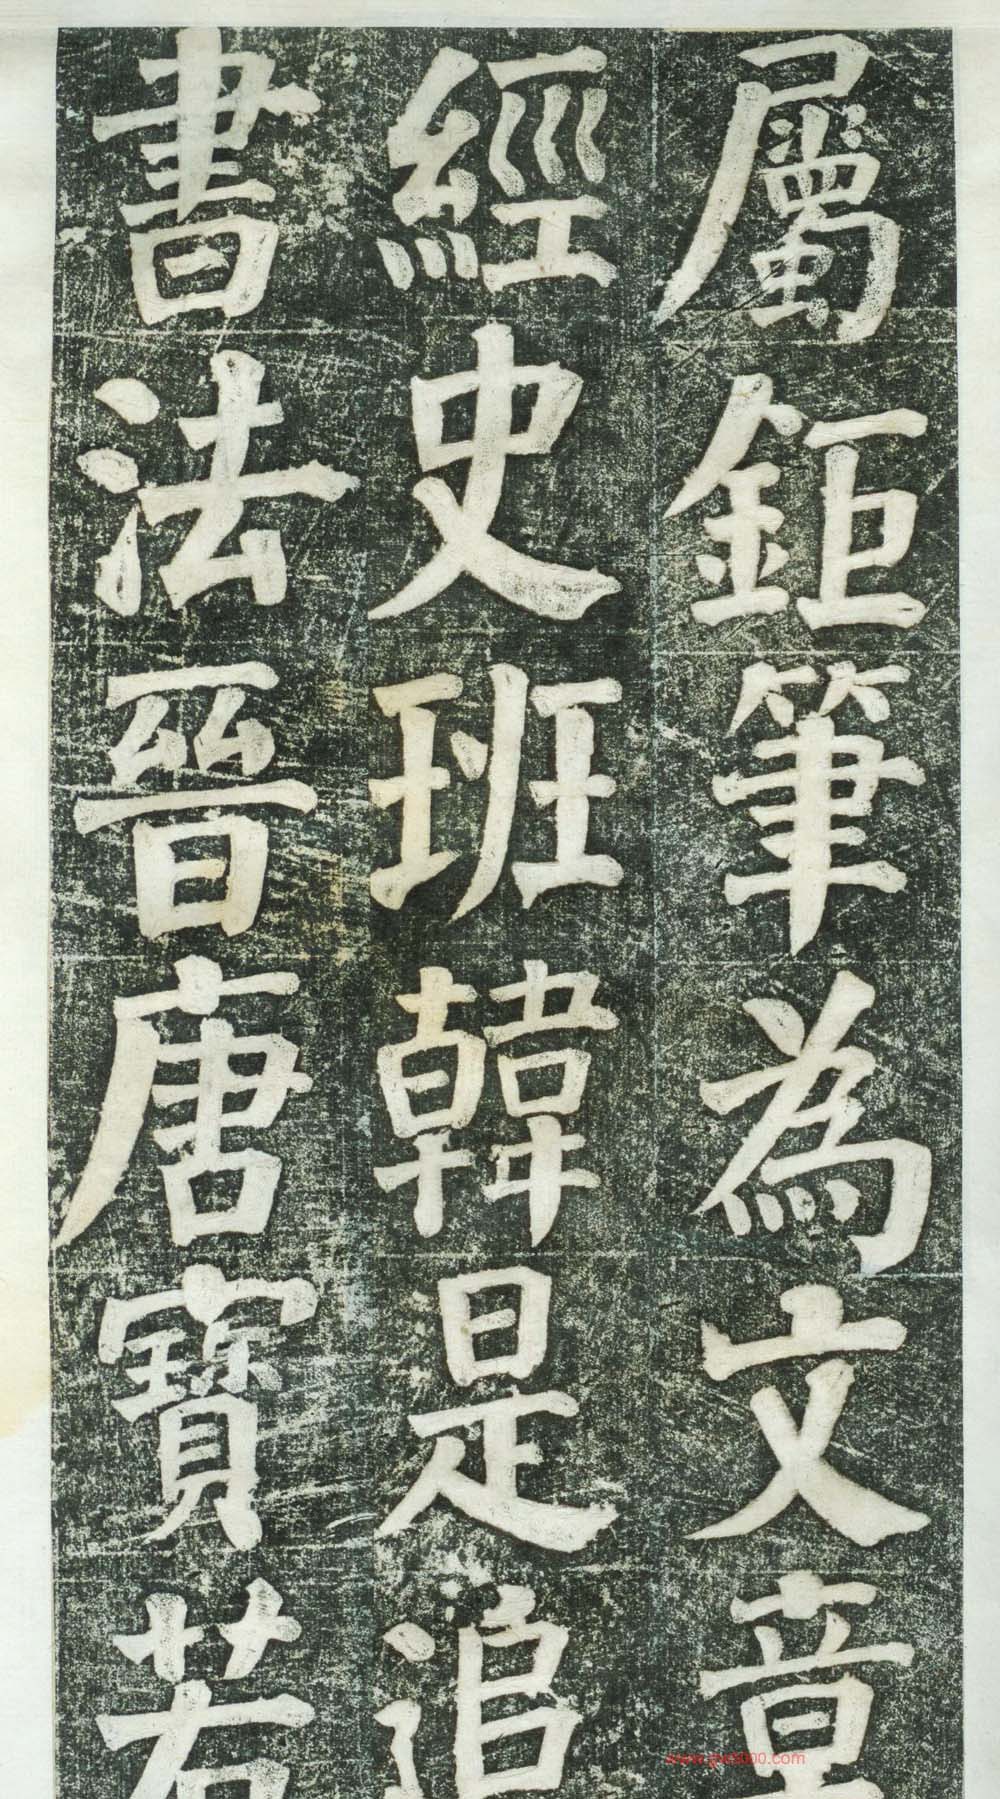 屬鉅筆為文章
經史班韓是追
書法晉唐寶若